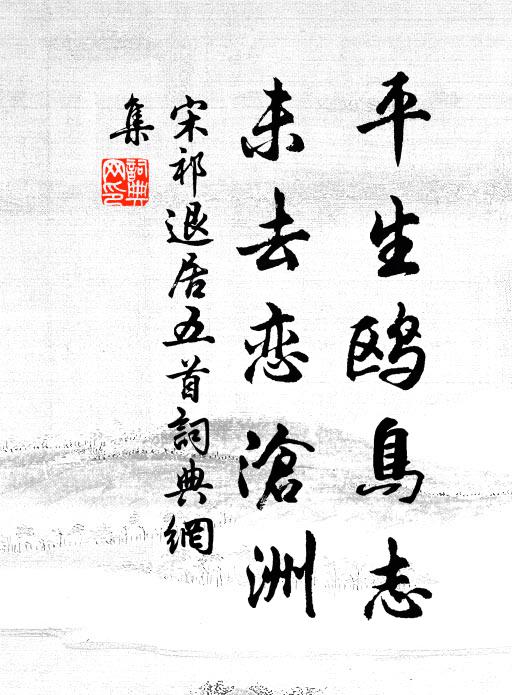 平生鸥鳥志
未去恋滄洲
宋祁退居五首詞典網
集
詞典
网印